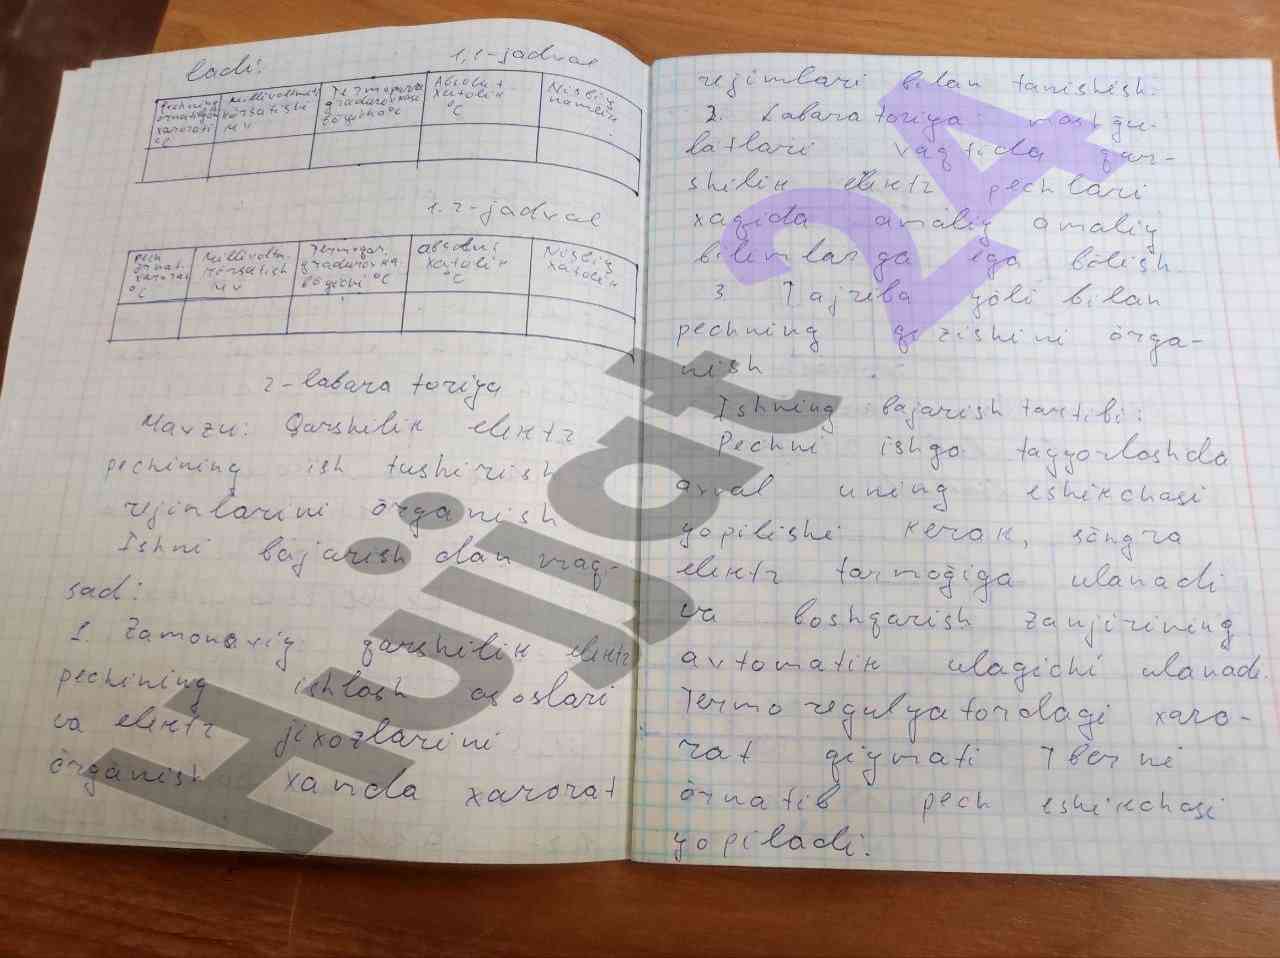 ladi:
1,1-jadval
Pechning õrnatilgan xarorati °C
Millivoltmetr kõrsatishi MV
Termopara graduirovkasi bõyicha °C
Absolut xatolik °C
Nisbiy
1.2-jadval
Pech õrnat. xarorat °C
Millivoltm. kõrsatish MV
Termopar. graduirovka bõyicha °C
absolut xatolik °C
Nisbiy xatolik
2-labara toriya
Mavzu: Qarshilik elektr
pechining ish tushirish
rejimlarini õrganish
Ishni bajarish dan maq-
sad:
1 Zamonaviy qarshilik elektr
pechining ishlash asoslari
va elektr jixozlarini
õrganish xamda xarorat
rejimlari bilan tanishish.
2. Labara toriya mashgu-
latlari vaqtida qar-
shilik elektr pechlari
xaqida amaliy amaliy
bilimlarga ega bõlish.
3 Tajriba yõli bilan
pechning qizishini õrga-
nish
Ishning bajarish tartibi:
Pechni ishga tayyorlashda
avval uning eshikchasi
yopilishi kerak, sõngra
elektr tarmoğiga ulanadi
va boshqarish zanjirining
avtomatik ulagichi ulanadi.
Termo regulyatordagi xaro-
rat qiymati Tber ni
õrnatib pech eshikchasi
yopiladi.
Hujjat 24